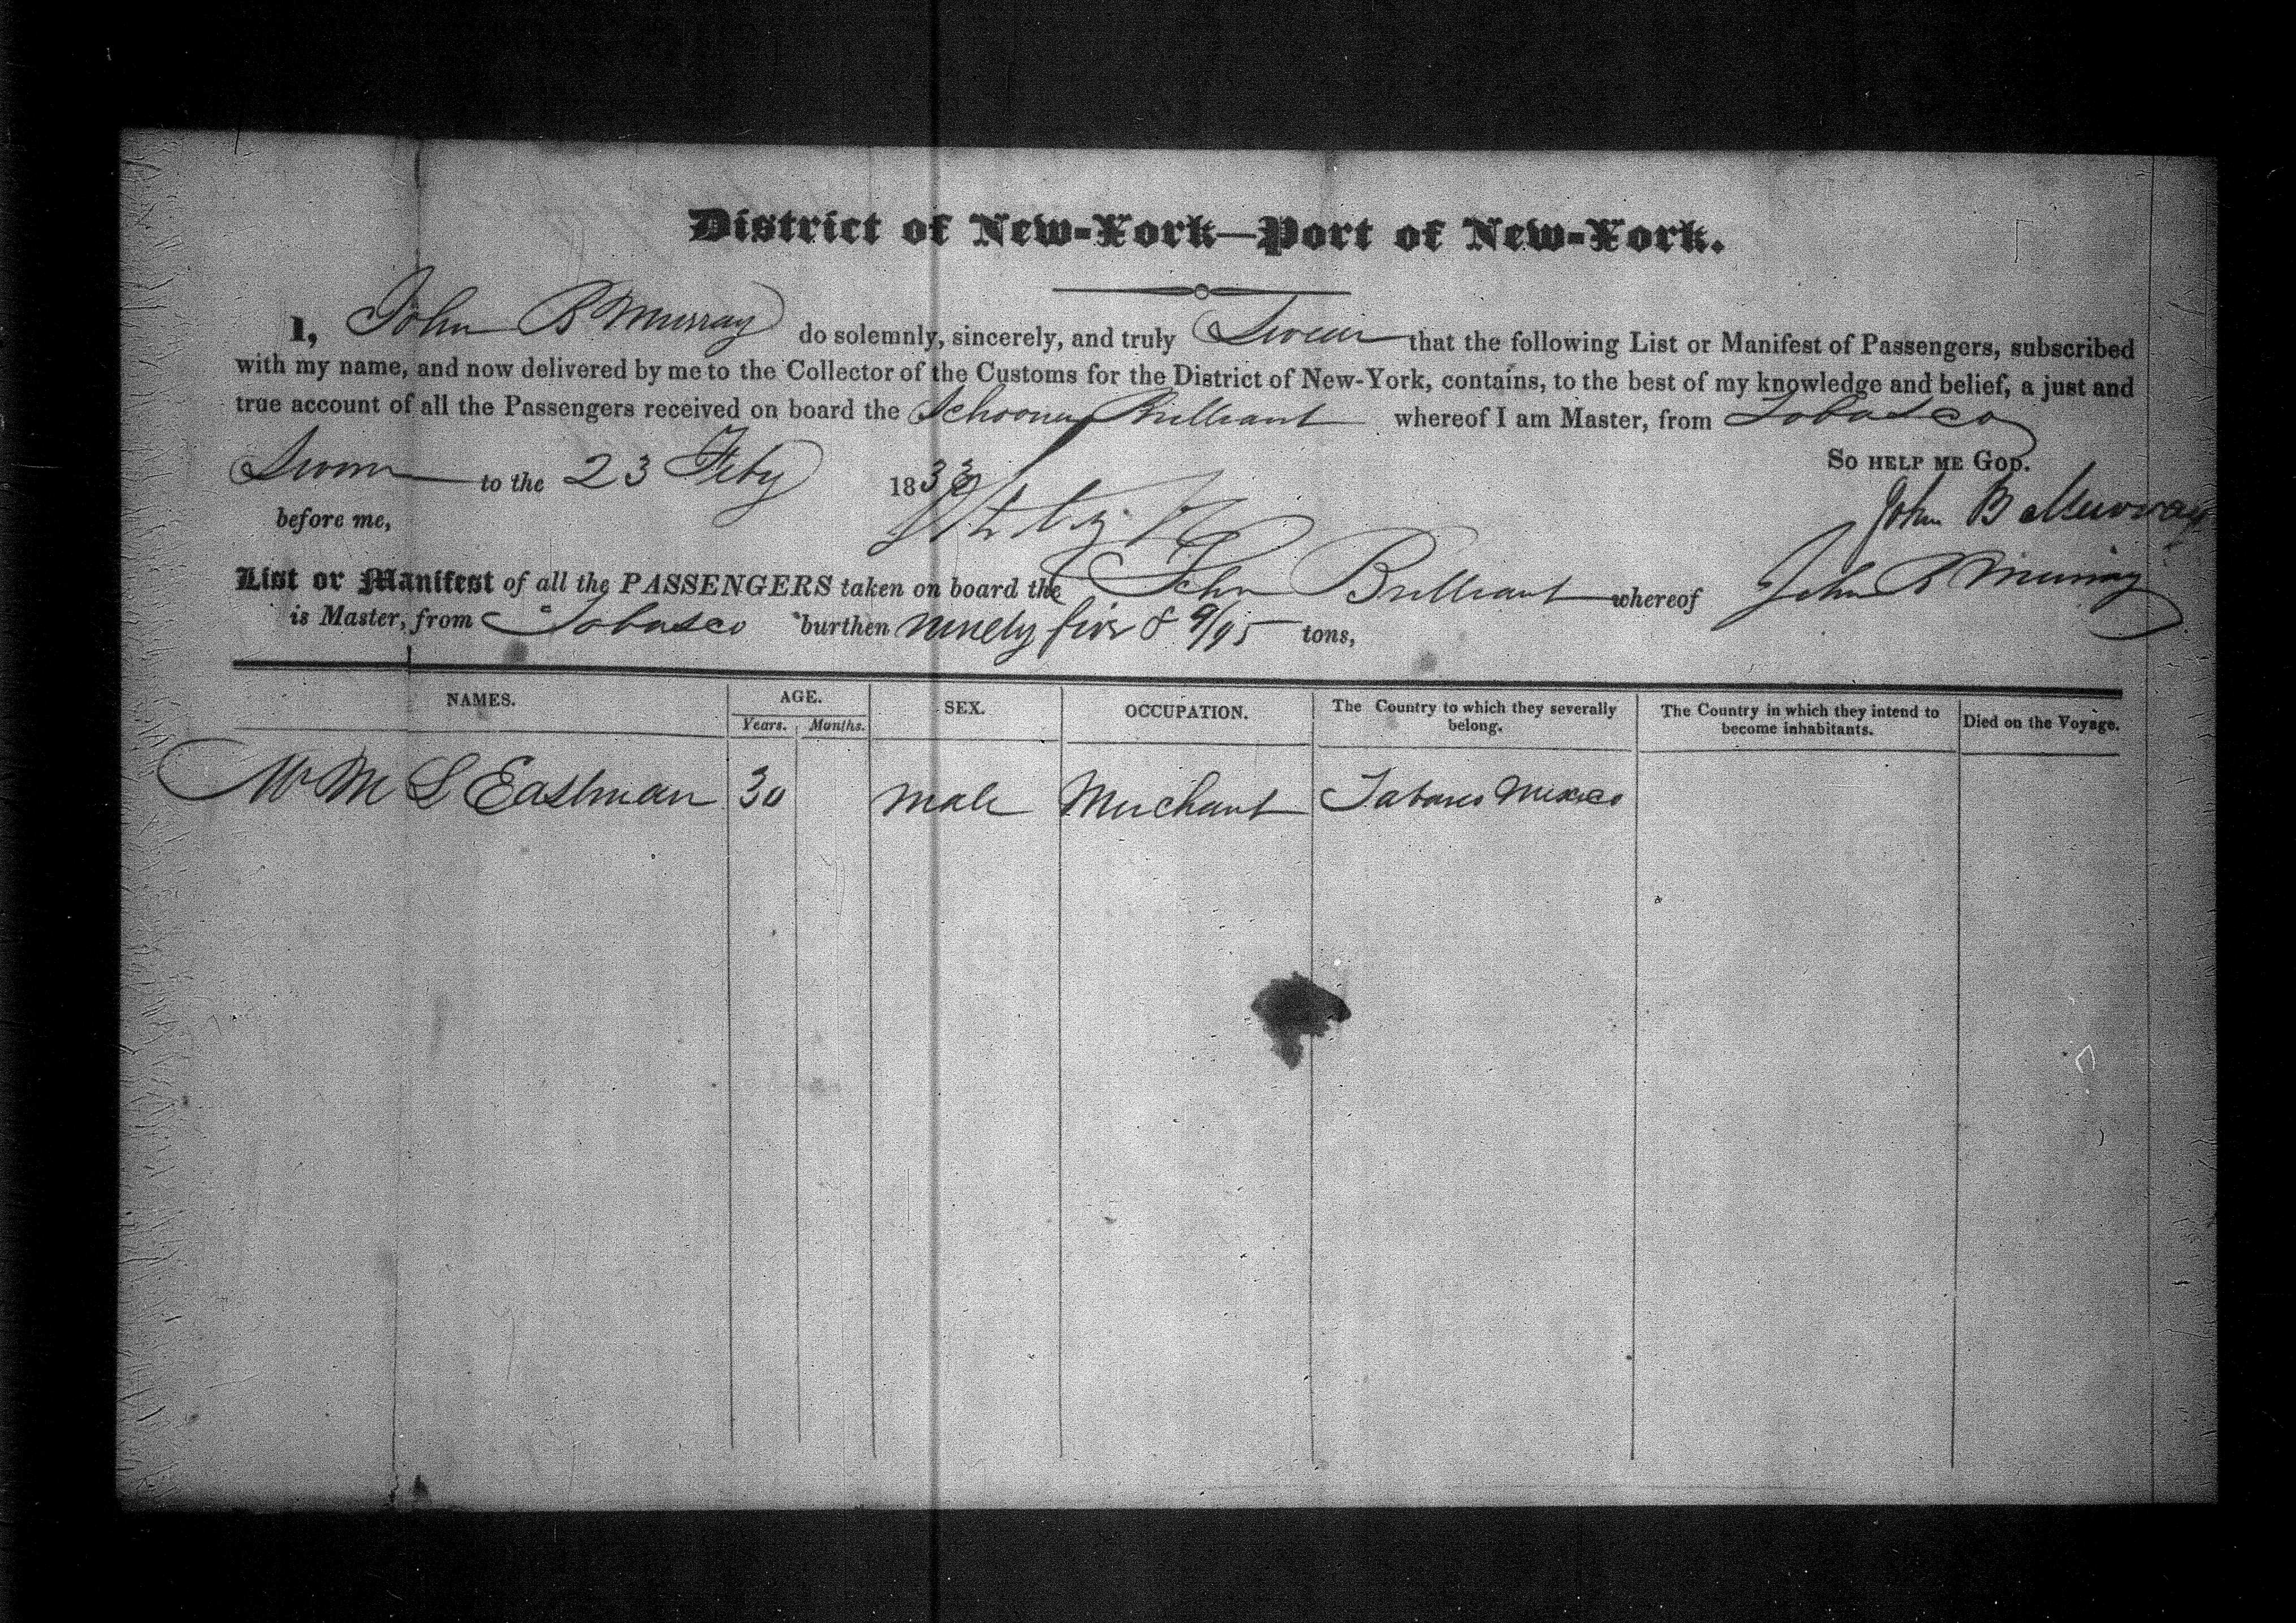 District of New-York—Port of New-York.
I, John B Murray do solemnly, sincerely, and truly Swear that the following List or Manifest of Passengers, subscribed
with my name, and now delivered by me to the Collector of the Customs for the District of New-York, contains, to the best of my knowledge and belief, a just and
true account of all the Passengers received on board the Schooner Brilliant whereof I am Master, from Tobasco
So help me God.
Sworn to the 23 Feby 1833
before me,
John B Murray
List or Manifest of all the PASSENGERS taken on board the Schr Brilliant whereof John B Murray
is Master, from Tobasco burthen ninety five & 9/95 tons,
NAMES. AGE. SEX. OCCUPATION. The Country to which they severally belong. The Country in which they intend to become inhabitants. Died on the Voyage.
Years. Months.
Mr M L Eastman 30 male Merchant Mexico